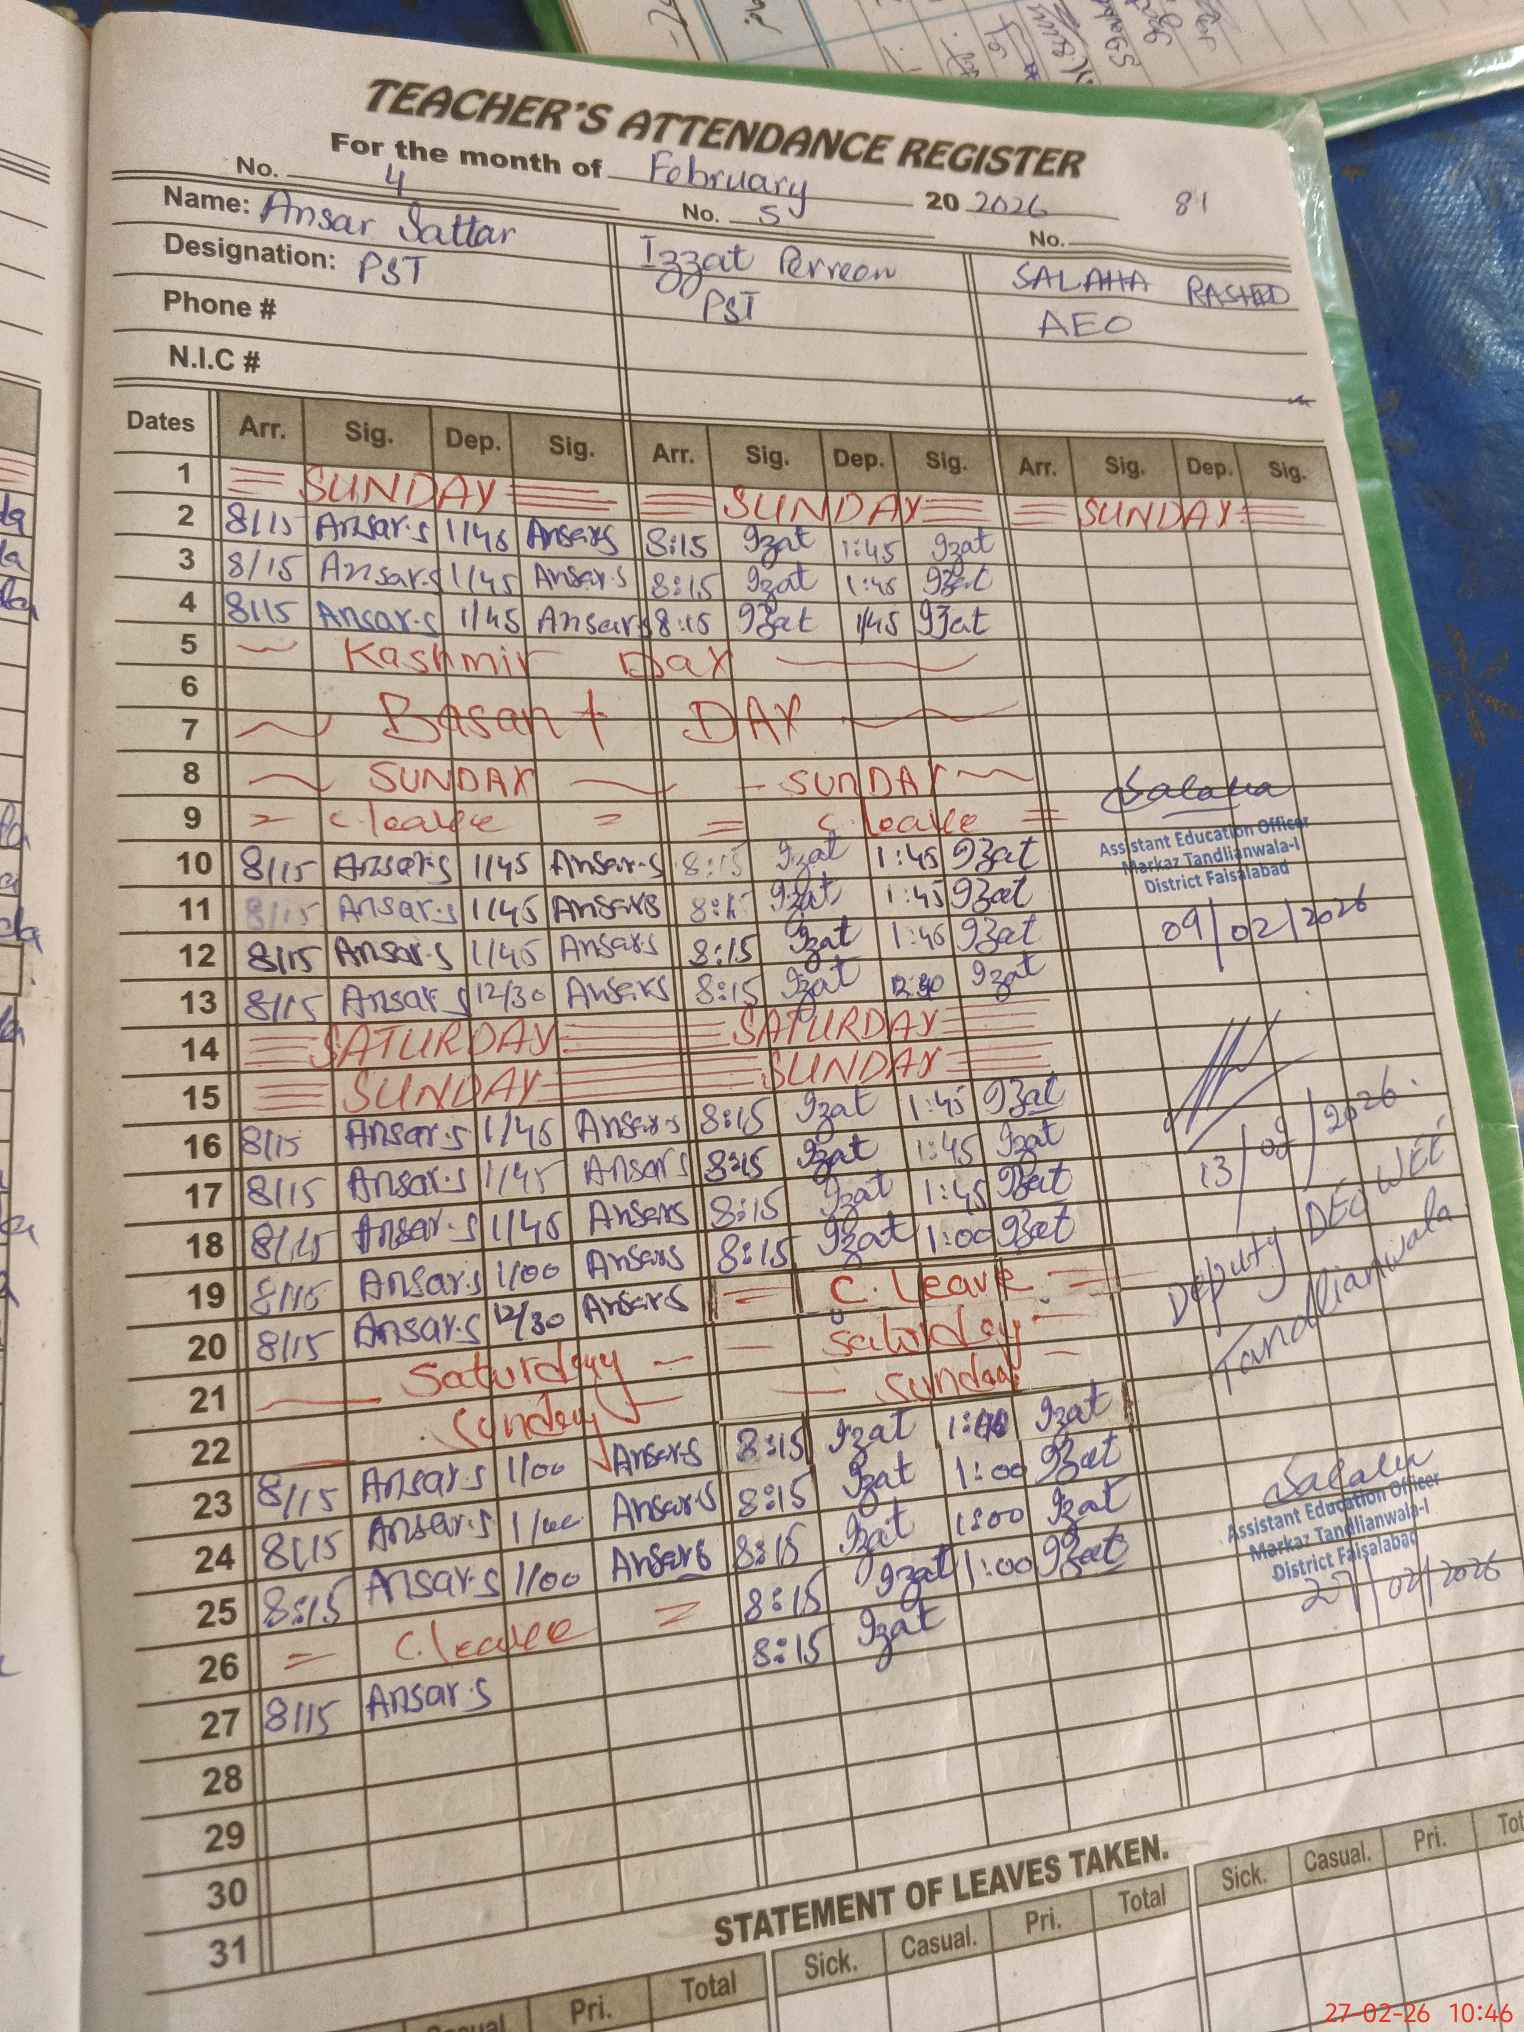 TEACHER'S ATTENDANCE REGISTER
For the month of February 20 2026 81
No. 4 No. 5 No.
Name: Ansar Sattar Izzat Perveen SALAHA RASHED
Designation: PST PST AEO
Phone #
N.I.C #
Dates Arr. Sig. Dep. Sig. Arr. Sig. Dep. Sig. Arr. Sig. Dep. Sig.
1 SUNDAY SUNDAY SUNDAY
2 8/15 Ansar.s 1/45 Ansars 8:15 Izat 1:45 Izat
3 8/15 Ansar.s 1/45 Ansar.s 8:15 Izat 1:45 Izat
4 8/15 Ansar.s 1/45 Ansars 8:15 Izat 1/45 Izat
5 Kashmir DAY
6
7 Basant DAY
8 SUNDAY SUNDAY
9 = C.leave = = C.leave =
10 8/15 Ansar.s 1/45 Ansar.s 8:15 Izat 1:45 Izat
11 8/15 Ansar.s 1/45 Ansars 8:15 Izat 1:45 Izat
12 8/15 Ansar.s 1/45 Ansars 8:15 Izat 1:45 Izat
13 8/15 Ansar.s 12/30 Ansars 8:15 Izat 12:30 Izat
14 SATURDAY SATURDAY
15 SUNDAY SUNDAY
16 8/15 Ansar.s 1/45 Ansar.s 8:15 Izat 1:45 Izat
17 8/15 Ansar.s 1/45 Ansars 8:15 Izat 1:45 Izat
18 8/15 Ansar.s 1/45 Ansars 8:15 Izat 1:45 Izat
19 8/15 Ansar.s 1/00 Ansars 8:15 Izat 1:00 Izat
20 8/15 Ansar.s 12/30 Ansars = C.leave =
21 Saturday Saturday
22 Sunday Sunday
23 8/15 Ansar.s 1/00 Ansar.s 8:15 Izat 1:00 Izat
24 8/15 Ansar.s 1/00 Ansar.s 8:15 Izat 1:00 Izat
25 8:15 Ansar.s 1/00 Ansars 8:15 Izat 1:00 Izat
26 = C.leave = 8:15 Izat 1:00 Izat
27 8/15 Ansar.s 8:15 Izat
28
29
30
31
Salaha
Assistant Education Officer
Markaz Tandlianwala-I
District Faisalabad
09/02/2026
13/02/2026
Deputy DEO WEE
Tandlianwala
Salaha
Assistant Education Officer
Markaz Tandlianwala-I
District Faisalabad
27/02/2026
STATEMENT OF LEAVES TAKEN.
Pri. Total Sick. Casual. Pri. Total Sick. Casual. Pri.
27-02-26 10:46